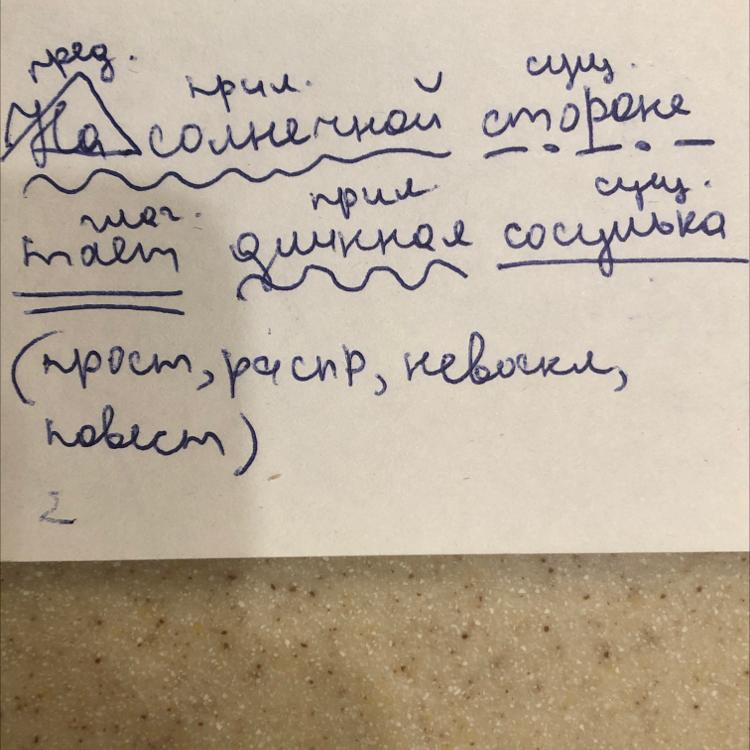 пред. прил. сущ.
На солнечной стороне
глаг. прил. сущ.
тает длинная сосулька
(прост, распр, невоскл,
повест)
2